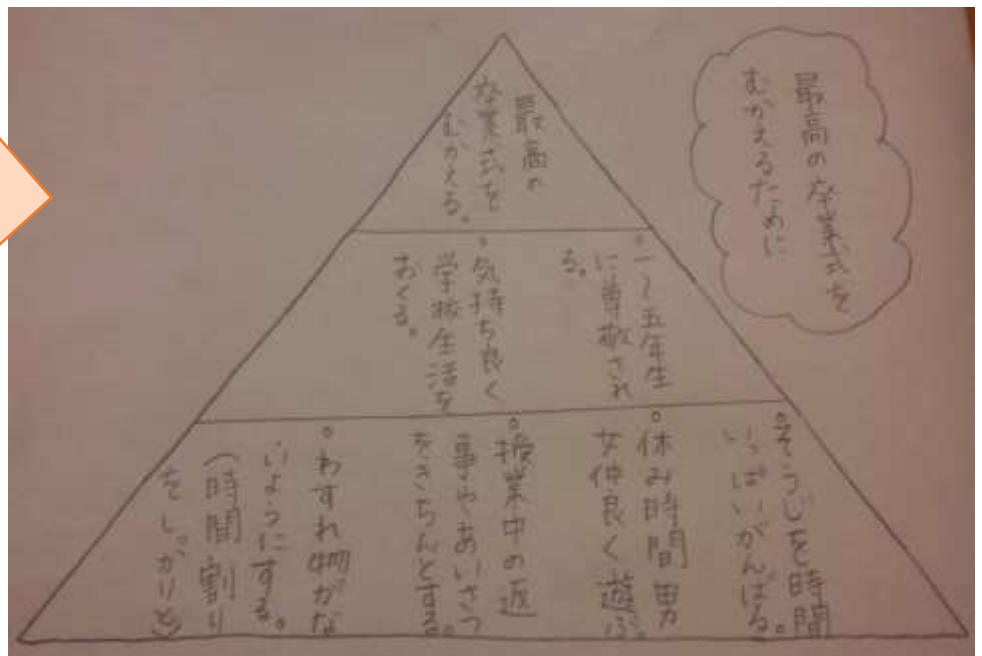 最高の卒業式を
むかえるために
最高の
卒業式を
むかえる。
。一〜五年生
に尊敬され
る。
。気持ち良く
学校生活を
おくる。
。そうじを時間
いっぱいがんばる。
。休み時間男
女仲良く遊ぶ。
。授業中の返
事やあいさつ
をきちんとする。
。わすれ物がな
いようにする。
(時間割り
をしっかりと)